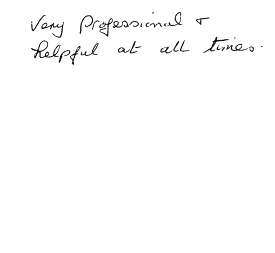 Very Professional &
helpful at all times.